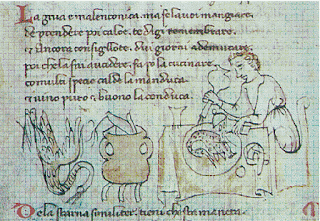 La grua e malenconica, ma se la voi mangiare.
de prendere piu calce, te digi remembrare.
et Ancora consigllote, dui giorni ademurare.
poi che la fai aucidere, fa po la cucinare.
com multi specie calde la manduca.
et uino puro et buono la conduca.
De la starna similiter, tieni che sta maneta.